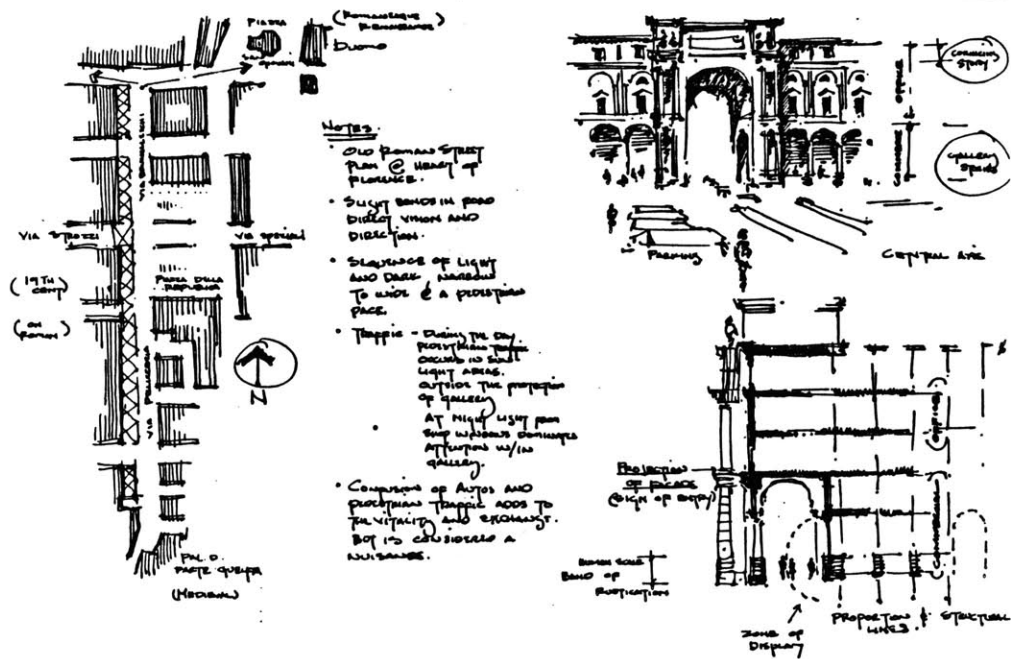 PIAZZA
SAN GIOVANNI
(ROMANESQUE
RENAISSANCE)
DUOMO
VIA BRUNELLESCHI
VIA STROZZI
VIA SPEZIALI
(19TH
CENT)
(ON
ROMAN)
PIAZZA DELLA
REPUBLICA
VIA PELLICCERIA
N
PAL. D.
PARTE GUELFA
(MEDIEVAL)
NOTES:
• OLD ROMAN STREET
PLAN @ HEART OF
FLORENCE.
• SLIGHT BENDS IN ROAD
DIRECT VISION AND
DIRECTION.
• SEQUENCE OF LIGHT
AND DARK NARROW
TO WIDE @ A PEDESTRIAN
PACE.
• TRAFFIC - DURING THE DAY
PEDESTRIAN TRAFFIC
OCCURS IN SUN
LIGHT AREAS.
OUTSIDE THE PROTECTION
OF GALLERY
AT NIGHT LIGHT FROM
SHOP WINDOWS DOMINATES
ATTENTION W/IN
GALLERY.
• CONFUSION OF AUTOS AND
PEDESTRIAN TRAFFIC ADDS TO
THE VITALITY AND EXCHANGE.
BUT IS CONSIDERED A
NUISANCE.
OFFICE
COMMERCE
CORNICING
STORY
GALLERY
SPACES
PARKING
CENTRAL AXIS
PROJECTION
OF FACADE
(SIGN OF ENTRY)
HUMAN SCALE
BAND OF
RUSTICATION
(OFFICES)
(COMMERCIAL)
ZONE OF
DISPLAY
PROPORTION & STRUCTURAL
LINES.